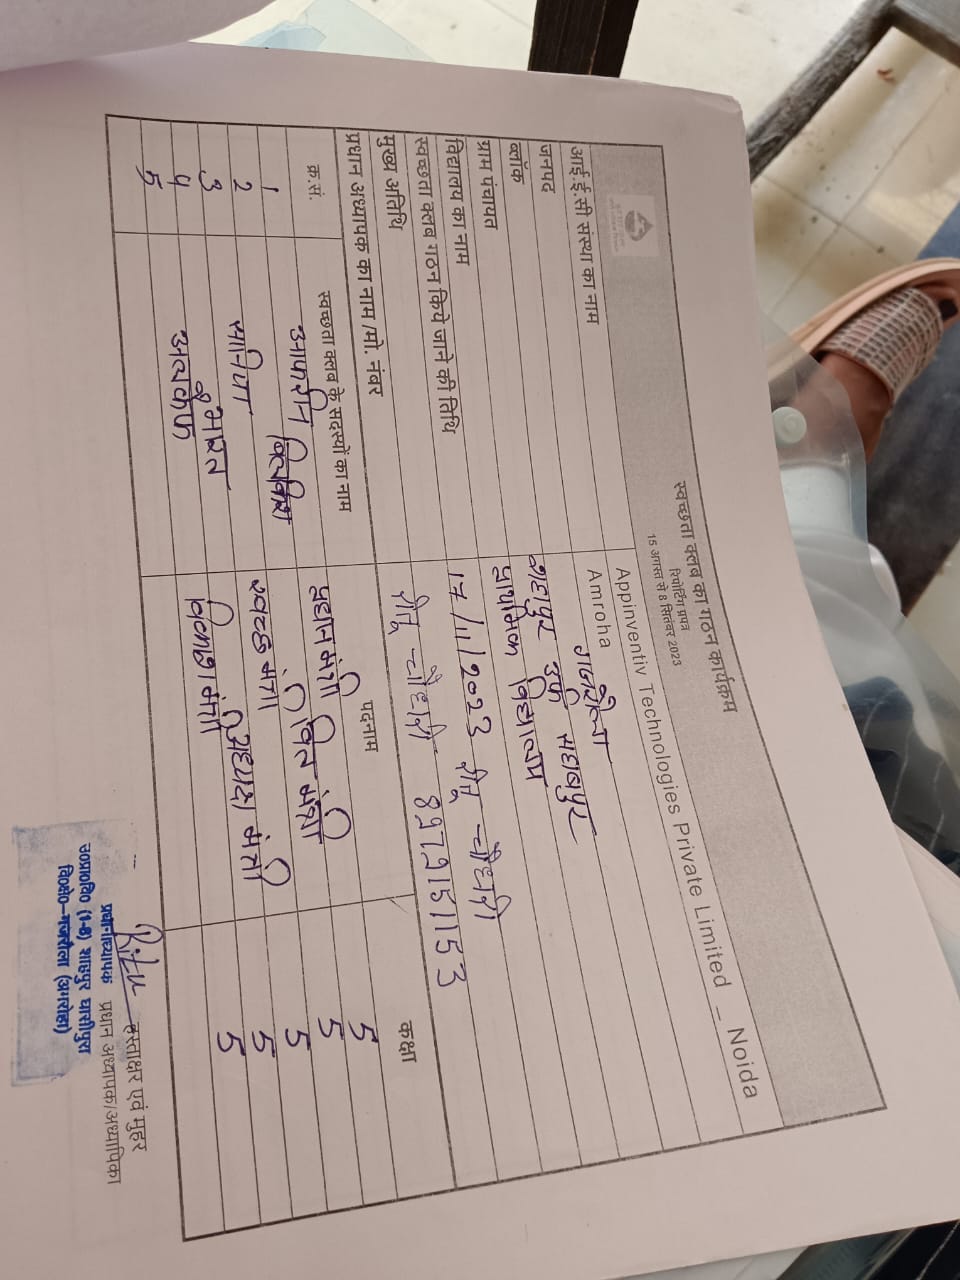 स्वच्छता क्लब का गठन कार्यक्रम
रिपोर्टिंग प्रपत्र
15 अगस्त से 8 सितंबर 2023
आई.ई.सी संस्था का नाम Appinventiv Technologies Private Limited _ Noida
जनपद Amroha
ब्लॉक गजरौला
ग्राम पंचायत शहापुर उर्फ
विद्यालय का नाम प्राथमिक विद्यालय
स्वच्छता क्लब गठन किये जाने की तिथि 17/11/2023 रीतू चौधरी
मुख्य अतिथि रीतू चौधरी 8979151153
प्रधान अध्यापक का नाम/मो. नंबर
क्र.सं. स्वच्छता क्लब के सदस्यों का नाम पदनाम कक्षा
1 आफरीन प्रधान मंत्री 5
2 वित्त मंत्री 5
3 सानिया स्वच्छ मंत्री 5
4 5
5 शिक्षा मंत्री 5
Ritu
हस्ताक्षर एवं मुहर
प्रधान अध्यापक/अध्यापिका
प्रधानाध्यापक
उ०प्रा०वि० (1-8) शाहपुर
वि०क्षे०-गजरौला (अमरोहा)